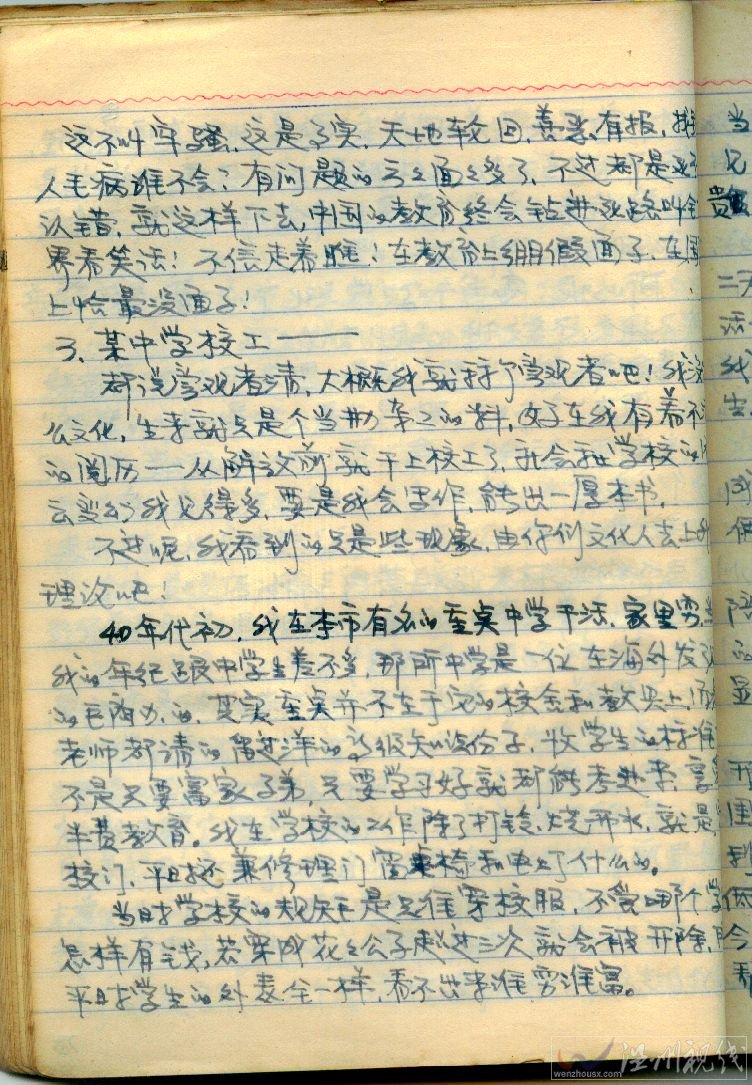 这不叫牢骚，这是事实，天地轮回，善恶有报，挑
人毛病谁不会？有问题的方方面面多了，不过都是死不
认错，就这样下去，中国的教育终会钻进死路叫全
界看笑话！不信走着瞧！在教育上绷假面子，在国
上恰会最没面子！
3、某中学校工——
都说旁观者清，大概我就算个旁观者吧！我没
么文化，生来就只是个当勤杂工的料，好在我有着不
的阅历——从解放前就干上校工了，社会和学校的
云变幻我见得多，要是我会写作，能出一厚本书。
不过呢，我看到的只是些现象，由你们文化人去上升
理论吧！
40年代初，我在本市有名的至真中学干活，家里穷，
我的年纪跟中学生差不多，那所中学是一位在海外发
的巨商办的，其实至真并不在于它的校舍和教具上，而
老师都请的留过洋的高级知识份子，收学生的标准
不是只要富家子弟，只要学习好就都能考进来，享受
半费教育。我在学校的工作除了打铃、烧开水，就是
校门，平时还兼修理门窗桌椅和电灯什么的。
当时学校的规矩是只准穿校服，不管哪个学
怎样有钱，若穿成花花公子超过三次就会被开除，
平时学生的外表全一样，看不出来谁穷谁富。
当
兄
贵
二天
活
我
生
陪
的
显
开
佳
到
低
今
看
温州视线
wenzhousx.com